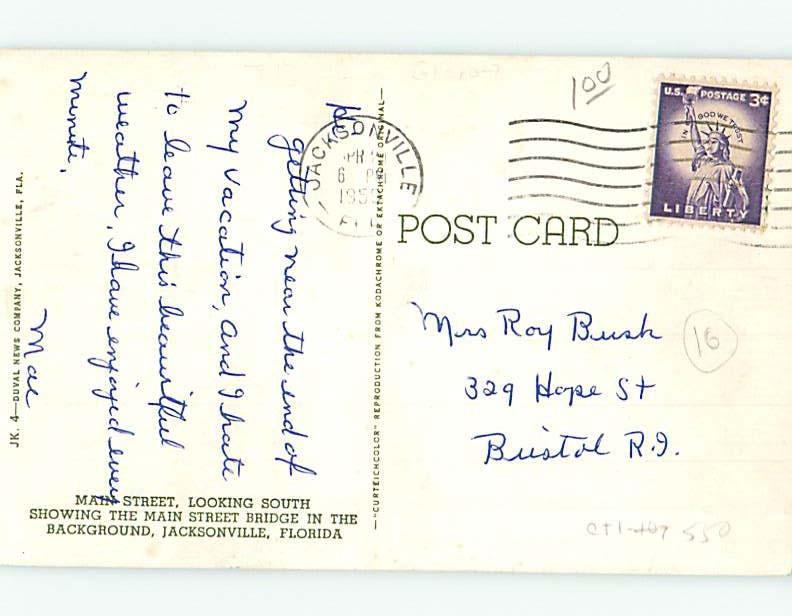 Hi,
getting near the end of
my vacation, and I hate
to leave this beautiful
weather, I have enjoyed every
minute.
Mae
MAIN STREET, LOOKING SOUTH
SHOWING THE MAIN STREET BRIDGE IN THE
BACKGROUND, JACKSONVILLE, FLORIDA
JK. 4—DUVAL NEWS COMPANY, JACKSONVILLE, FLA.
—"CURTEICHCOLOR" REPRODUCTION FROM KODACHROME OR EKTACHROME ORIGINAL—
JACKSONVILLE
6 P
195
1 00
U.S. POSTAGE 3¢
IN GOD WE TRUST
LIBERTY
POST CARD
Mrs Roy Bush
329 Hope St
Bristol R.I.
16
550